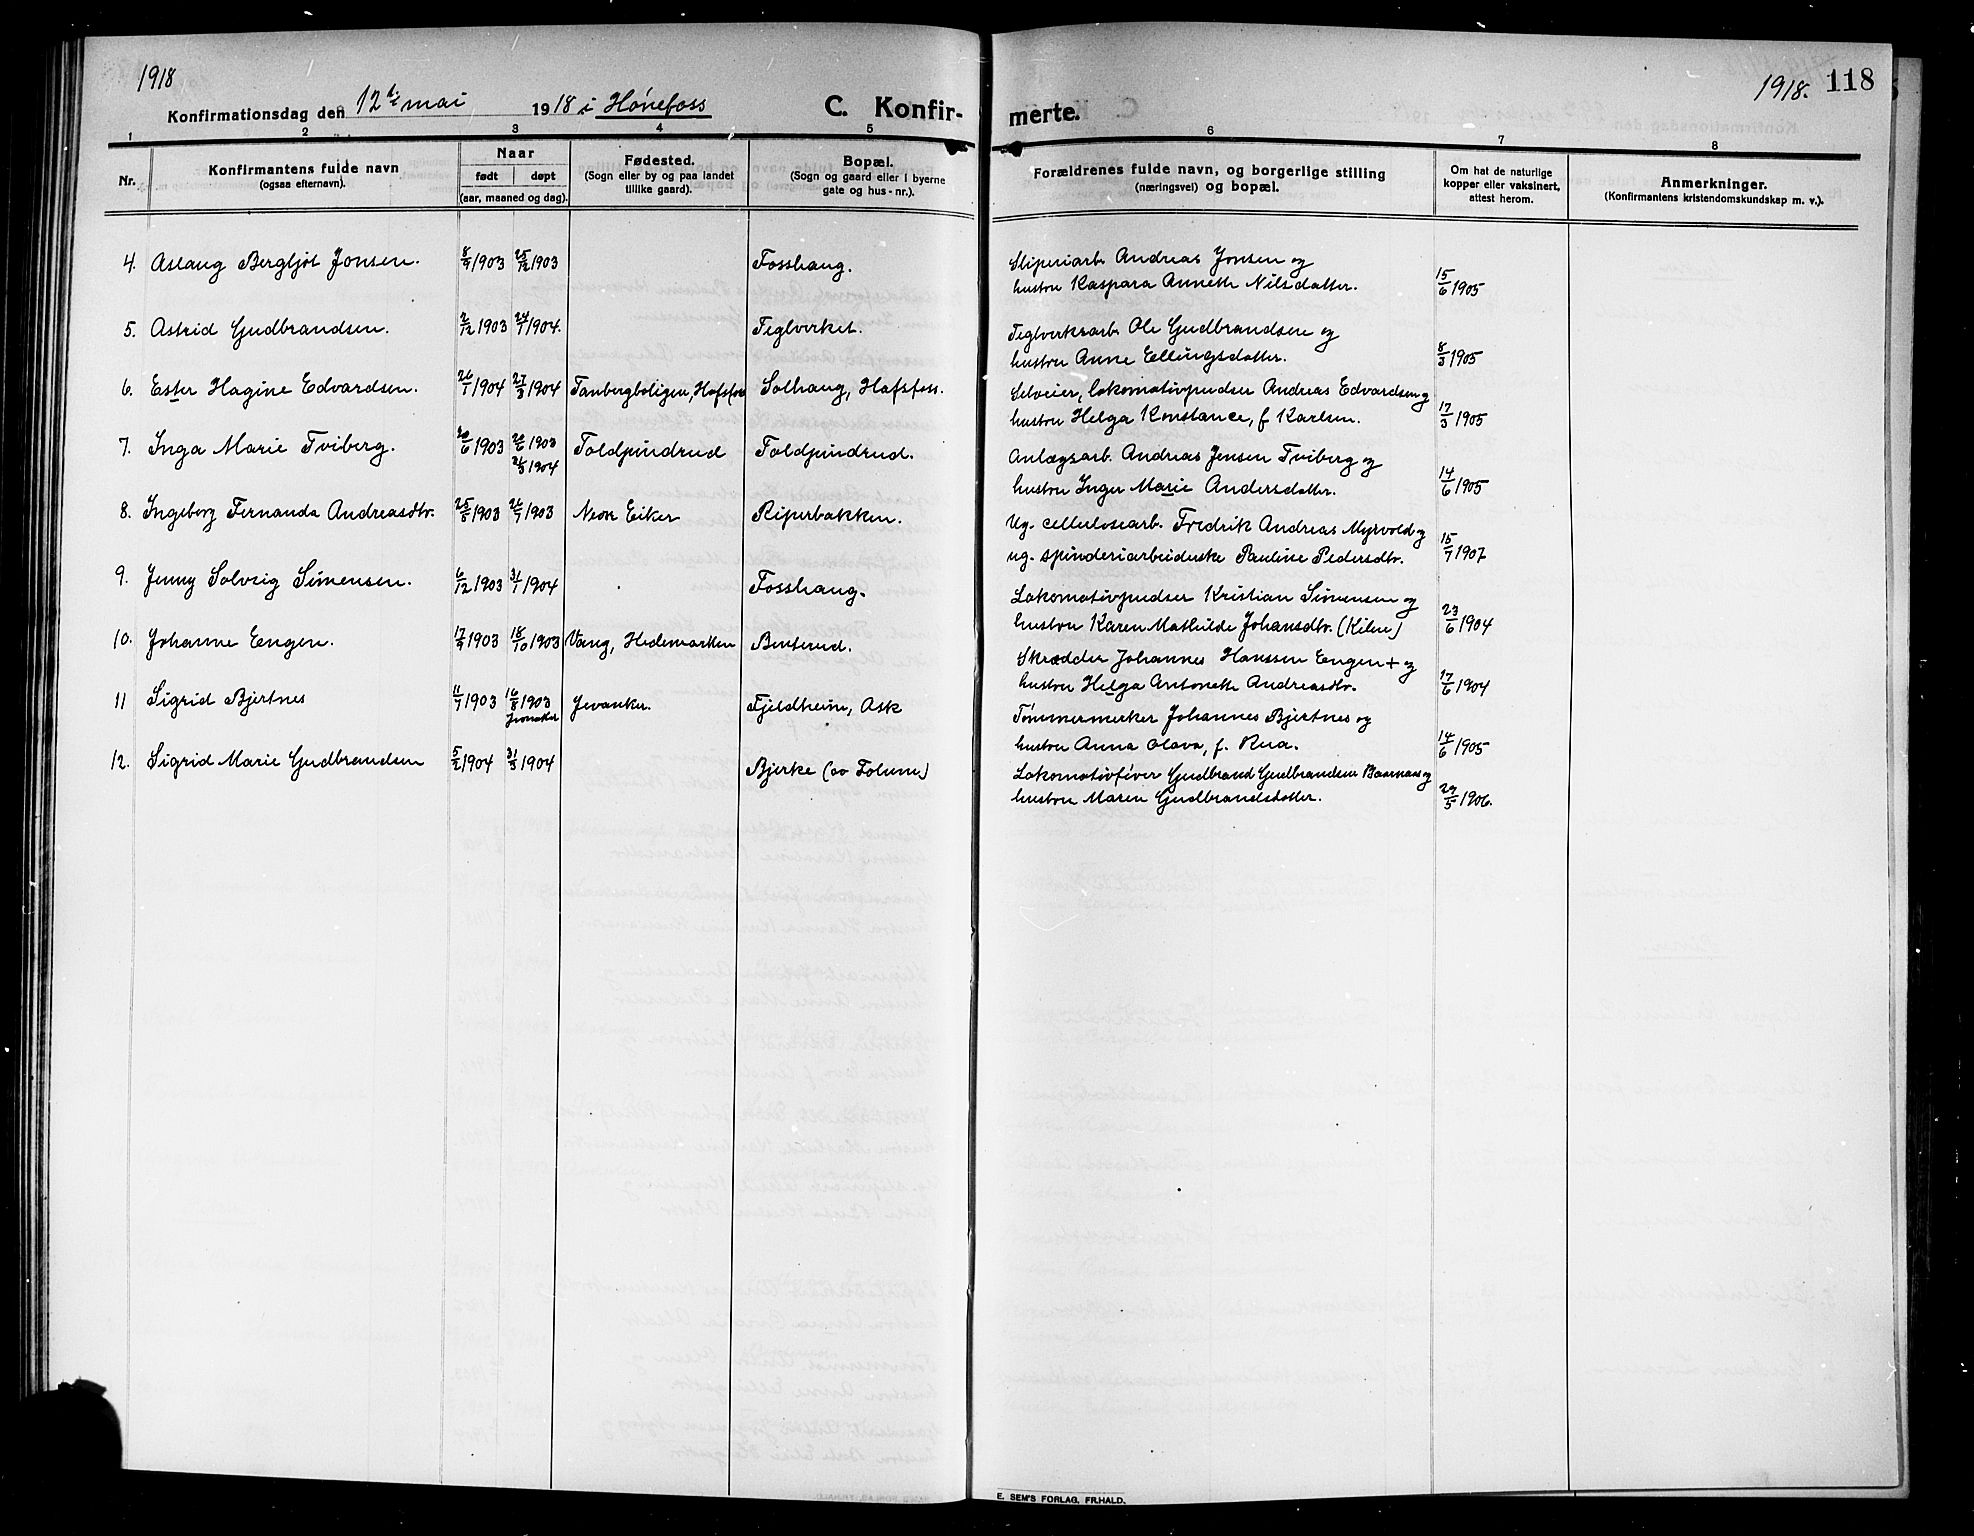 1918
Konfirmationsdag den 12te mai 1918 i Hønefoss
C. Konfir-
1 2 3 4 5
Nr. Konfirmantens fulde navn (ogsaa efternavn). Naar født døpt (aar, maaned og dag). Fødested. (Sogn eller by og paa landet tillike gaard). Bopæl. (Sogn og gaard eller i byerne gate og hus-nr.).
4. Aslaug Bergljot Jonsen. 8/9 1903 25/12 1903 Fosshaug.
5. Astrid Gudbrandsen. 2/12 1903 24/1 1904. Teglverket.
6. Ester Hagine Edvardsen. 26/1 1904 27/3 1904 Tanbergboligen, Hofsfos Solhaug, Hofsfoss.
7. Inga Marie Tviberg. 20/6 1903 20/6 1903 Toldpindrud Toldpindrud.
2/5 1904
8. Ingeborg Fernanda Andreasdtr. 25/5 1903 26/7 1903 Nedre Eiker Riperbakken.
9. Jenny Solveig Simensen. 6/12 1903 31/1 1904 Fosshaug.
10. Johanne Engen. 17/9 1903 18/10 1903 Vang, Hedemarken Benterud.
11 Sigrid Bjertnes 11/7 1903 16/8 1903 Jevnaker. Fjeldheim, Ask
Jevnaker
12. Sigrid Marie Gudbrandsen 5/2 1904 31/3 1904 Bjerke (ov Folum)
1918. 118
merte.
6 7 8
Forældrenes fulde navn, og borgerlige stilling (næringsvei) og bopæl. Om hat de naturlige kopper eller vaksinert, attest herom. Anmerkninger. (Konfirmantens kristendomskundskap m. v.).
Sliperiarb. Andreas Jonsen og
hustru Kaspara Anneth Nilsdatter. 15/6 1905
Teglverksarb. Ole Gudbrandsen og
hustru Anne Ellingsdatter. 8/3 1905
Selveier, lokomotivpudser Andreas Edvardsen og
hustru Helga Konstance, f. Karlsen. 17/3 1905
Anlægsarb. Andreas Jensen Tviberg og
hustru Inger Marie Andersdatter. 14/6 1905
Ug. cellulosearb. Fredrik Andreas Myrvold og
ug. spinderiarbeiderske Pauline Pedersdtr. 15/7 1907
Lokomotivpudser Kristian Simensen og
hustru Karen Mathilde Johansdtr. (Kilen) 23/6 1904
Skrædder Johannes Hanssen Engen + og
hustru Helga Antonette Andreasdtr. 17/6 1904
Tømmermerker Johannes Bjertnes og
hustru Anna Olava, f. Rua. 14/6 1905
Lokomotivfører Gudbrand Gudbrandsen Baarnaas og
hustru Maren Gudbrandsdatter. 29/5 1906.
E. SEM'S FORLAG, FR.HALD.